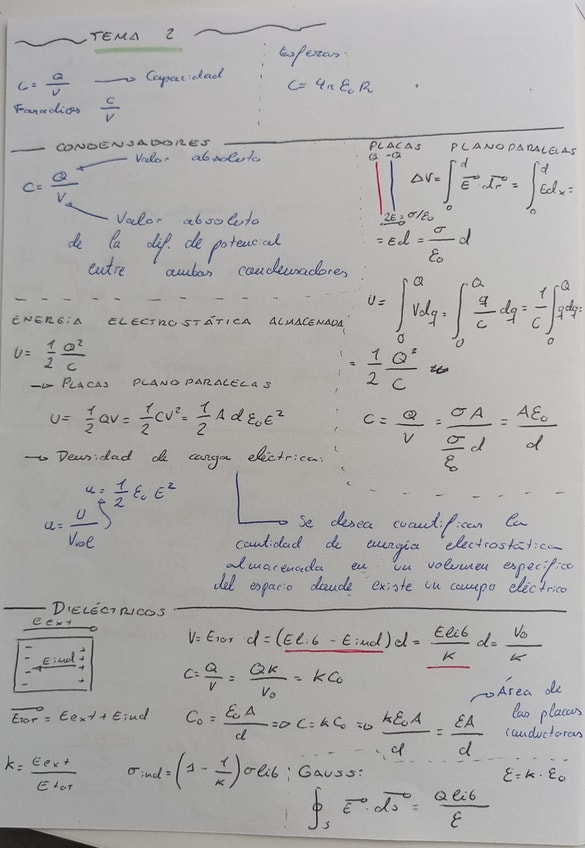 TEMA 2
C = Q/V → Capacidad
Faradios C/V
Esferas:
C = 4π ε₀ R
CONDENSADORES
Valor absoluto
C = Q/V
Valor absoluto
de la dif. de potencial
entre ambos condensadores
PLACAS PLANOPARALELAS
Q -Q
ΔV = ∫₀ᵈ E⃗ · dr⃗ = ∫₀ᵈ E dx =
2E = σ/ε₀
= Ed = σ/ε₀ d
U = ∫₀^Q V dq = ∫₀^Q q/C dq = 1/C ∫₀^Q q dq =
= 1/2 Q²/C
C = Q/V = σA/(σ/ε₀ d) = Aε₀/d
ENERGÍA ELECTROSTÁTICA ALMACENADA
U = 1/2 Q²/C
→ PLACAS PLANOPARALELAS
U = 1/2 QV = 1/2 CV² = 1/2 A d ε₀ E²
→ Densidad de carga eléctrica:
u = 1/2 ε₀ E²
u = U/Vol
Se desea cuantificar la
cantidad de energía electrostática
almacenada en un volumen específico
del espacio donde existe un campo eléctrico
DIELÉCTRICOS
Eext
- Eind +
V = Etot d = (Elib - Eind) d = Elib/k d = V₀/k
C = Q/V = Qk/V₀ = kC₀
E⃗tot = Eext + Eind
C₀ = ε₀A/d ⇒ C = kC₀ ⇒ kε₀A/d = εA/d
Área de
las placas
conductoras
k = Eext/Etot
σind = (1 - 1/k) σlib ; GAUSS:
ε = k · ε₀
∮s E⃗ · ds⃗ = Qlib/ε